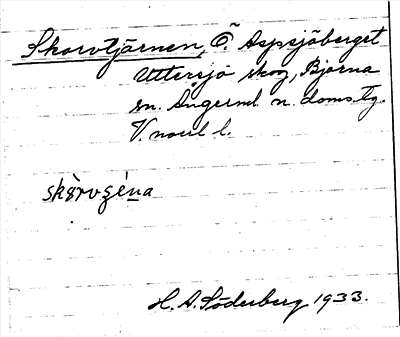 Skorvtjärnen, Ö. Aspsjöberget
Uttersjö skog, Björna
sn. Ångerml. n. doms.tg.
V. norrl l.
skørvgéna
H. A. Söderberg 1933.